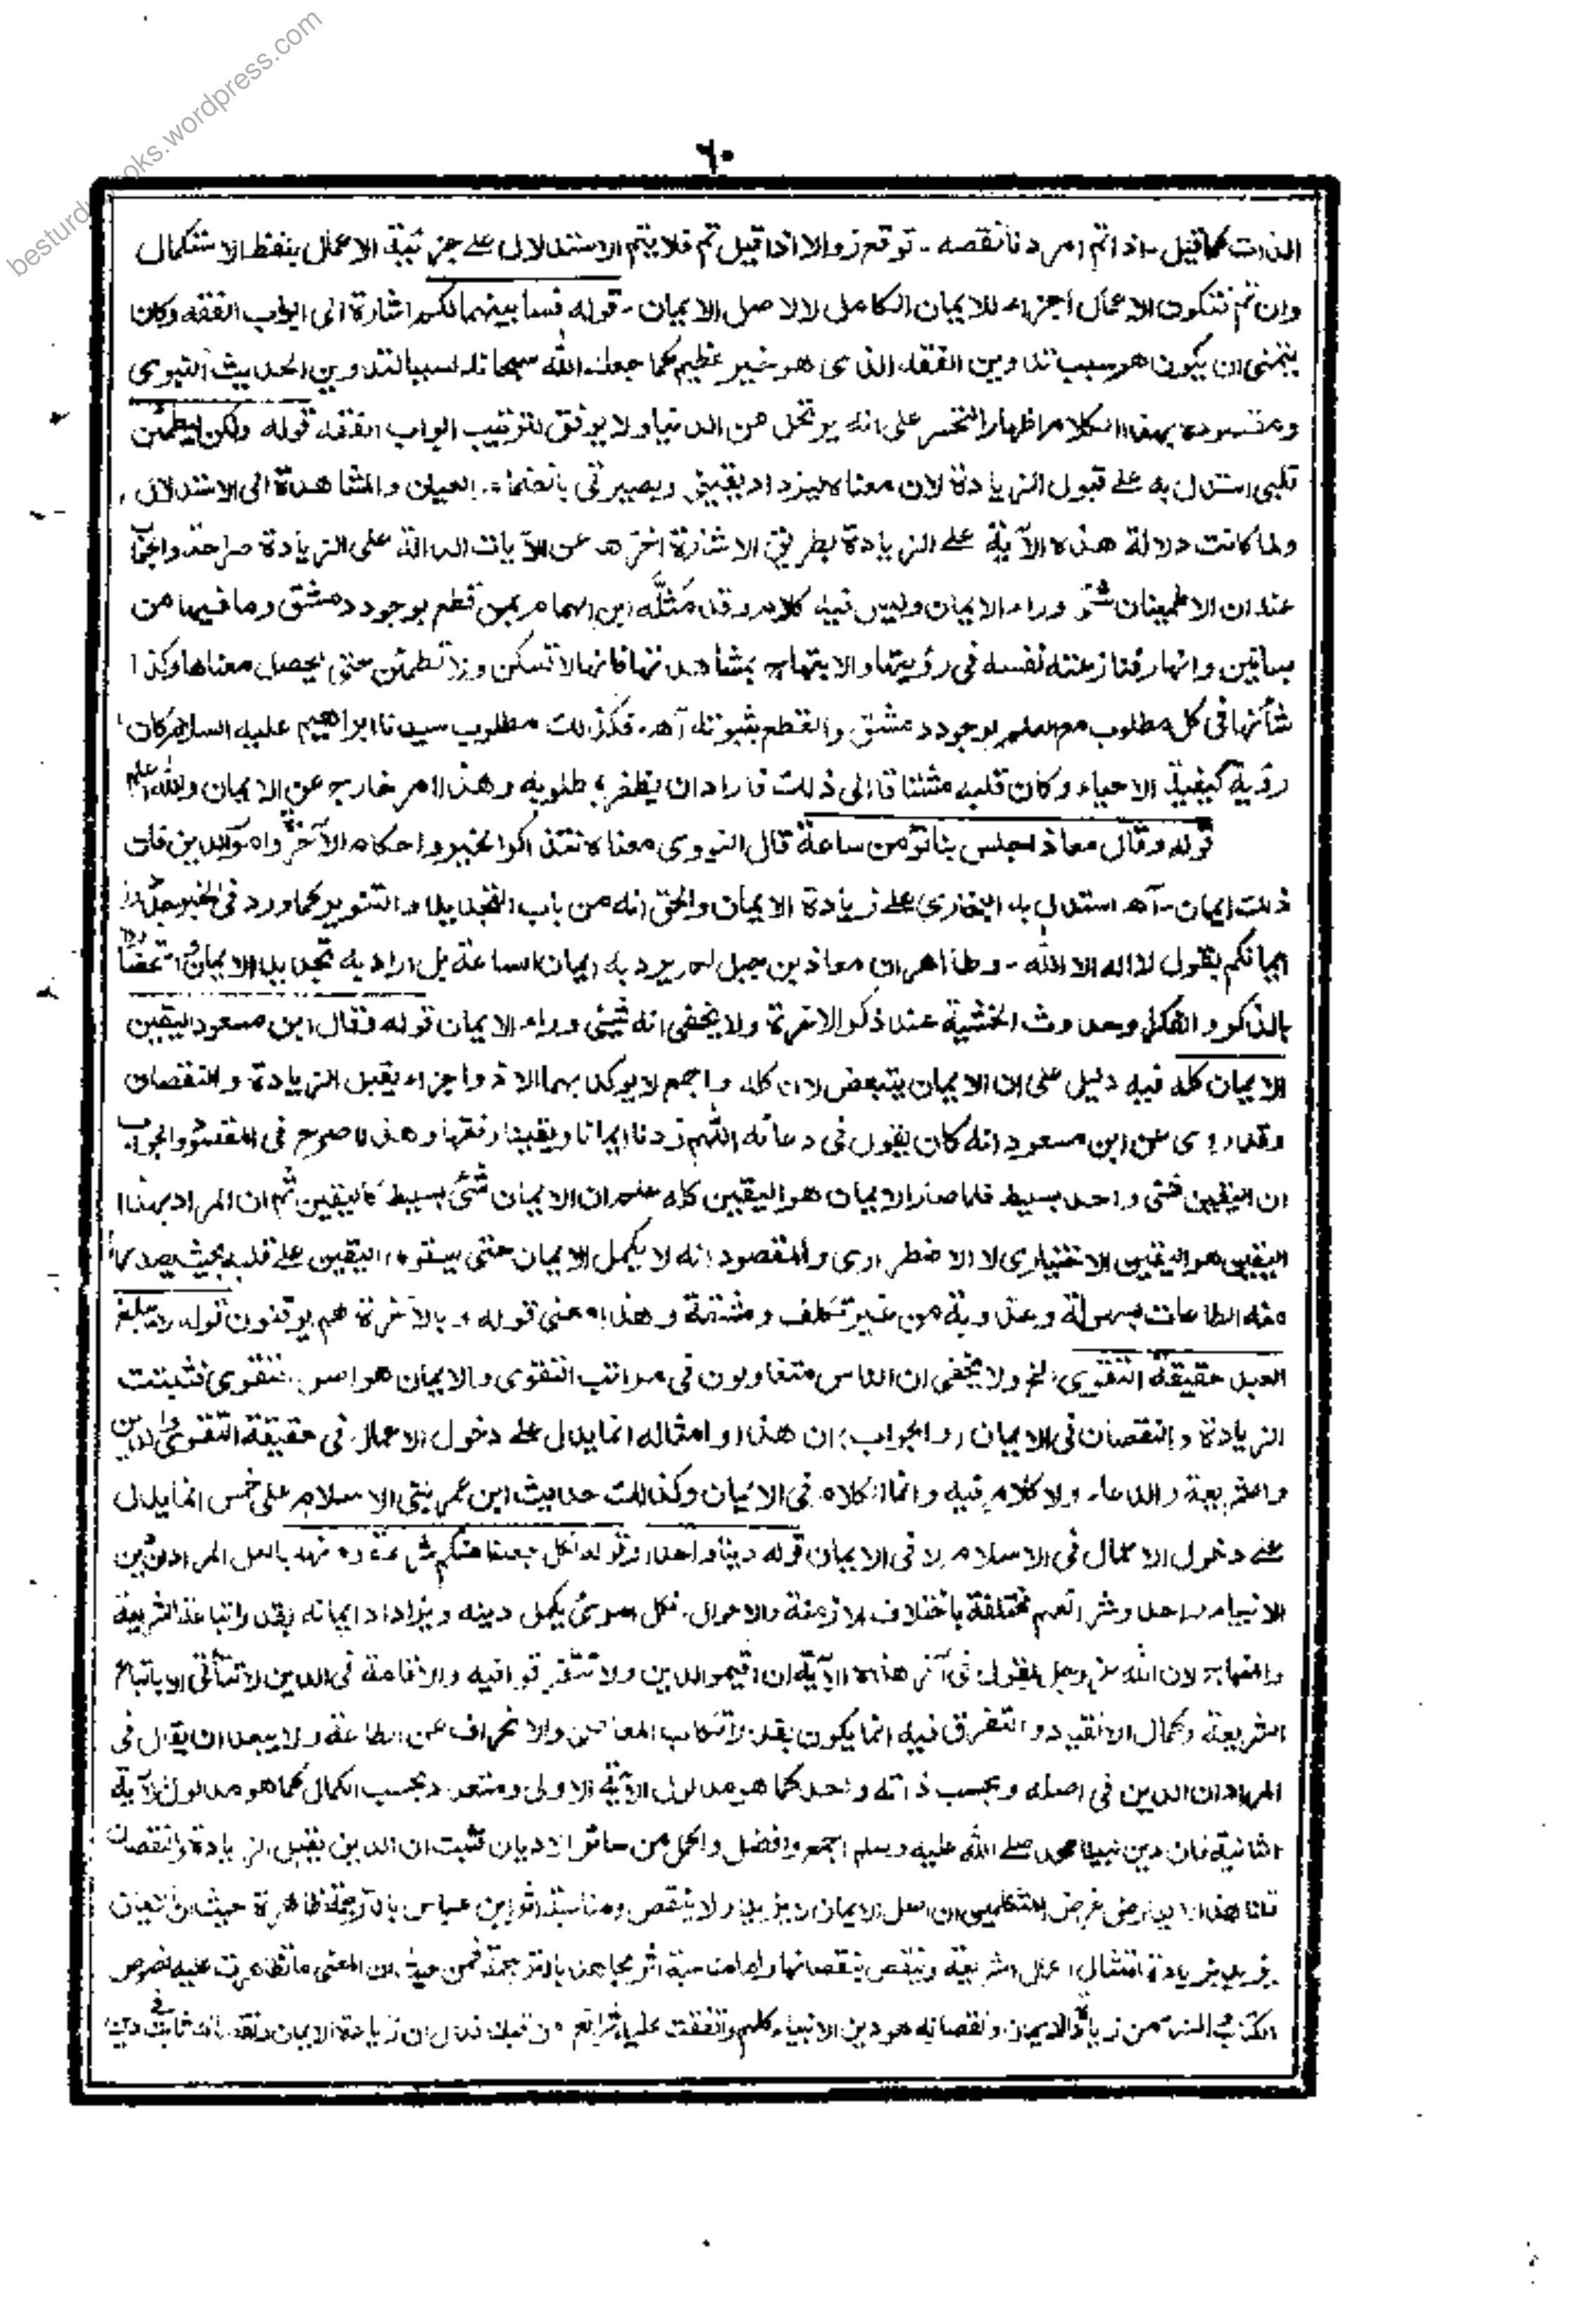 besturdubooks.wordpress.com
٦٠
الذات كما قيل - اذا تم امر دنا نقصه - توقع زوالا اذا قيل تم فلا يتم الاستدلال على جزئية الاعمال بلفظ الاستكمال
وان تم فتكون الاعمال اجزاء للايمان الكامل لا لاصل الايمان - قوله فسابينهما لكم اشارة الى ابواب الفقه وكان
يتمنى ان يكون هو سبب تدوين الفقه الذى هو خير عظيم كما جعله الله سبحانه سببا لتدوين الحديث النبوى
ومقصوده بهذا الكلام اظهار التحسر على انه يرتحل من الدنيا ولا يوفق لترتيب ابواب الفقه قوله ولكن ليطمئن
قلبى استدل به على قبول الزيادة لان معناه ليزداد يقينى وبصيرتى بانضمام العيان والمشاهدة الى الاستدلال
ولما كانت دلالة هذه الآية على الزيادة بطريق الاشارة اخره عن الآيات الدالة على الزيادة صراحة والجواب
عندان الاطمينان شئ وراء الايمان وليس فيه كلام وقد مثله ابن الهمام بمن قطع بوجود دمشق وما فيها من
بساتين وانهار فنازعته نفسه فى رؤيتها والابتهاج بمشاهدتها فانها لا تسكن ولا تطمئن حتى يحصل معناها وكذا
شأنها فى كل مطلوب مع العلم بوجود دمشق والقطع بثبوته آه - فكذلك مطلوب سيدنا ابراهيم عليه السلام كان
رؤية كيفية الاحياء وكان قلبه مشتاقا الى ذلك فاراد ان يظفر بمطلوبه وهذا امر خارج عن الايمان والله اعلم
قوله وقال معاذ اجلس بنا نؤمن ساعة قال النووى معناه نتذاكر الخير واحكام الآخرة وامور الدين فان
ذلك ايمان - آه استدل به البخارى على زيادة الايمان والحق انه من باب التجديد والتنوير كما ورد فى الخبر جددوا
ايمانكم بقول لا اله الا الله - وظاهر ان معاذ بن جبل لم يرد به ايمان الساعة بل اراد به تجديد الايمان
بالذكر والفكر وحدوث الخشية عند ذكر الاخرة ولا يخفى انه شئ وراء الايمان قوله وقال ابن مسعود اليقين
الايمان كله فيه دليل على ان الايمان يتبعض لان كله واجمع لا يوكد بهما الا ذو اجزاء يقبل الزيادة والنقصان
وقد روى عن ابن مسعود انه كان يقول فى دعائه اللهم زدنا ايمانا ويقينا وفقها وهذا اصرح فى المقصود والجواب
ان اليقين شئ واحد بسيط فلما صار الايمان هو اليقين كله علم ان الايمان شئ بسيط كاليقين ثم ان المراد بهذا
اليقين هو اليقين الاختيارى لا الاضطرارى والمقصود انه لا يكمل الايمان حتى يستولى اليقين على قلبه بحيث يصدر
منه الطاعات بسهولة وعذوبة من غير تكلف ومشقة وهذا معنى قوله وبالآخرة هم يوقنون قوله لا يبلغ
العبد حقيقة التقوى الخ ولا يخفى ان الناس متفاوتون فى مراتب التقوى والايمان هو اصل التقوى فثبتت
الزيادة والنقصان فى الايمان والجواب ان هذا وامثاله انما يدل على دخول الاعمال فى حقيقة التقوى والدين
والشريعة والدعاء ولا كلام فيه وانما الكلام فى الايمان وكذلك حديث ابن عمر بنى الاسلام على خمس انما يدل
على دخول الاعمال فى الاسلام لا فى الايمان قوله دينا واحدا وقوله لكل جعلنا منكم شرعة ومنهاجا المراد ان دين
الانبياء واحد وشرائعهم مختلفة باختلاف الازمنة والاحوال فكل امرئ يكمل دينه ويزداد ايمانه بقدر اتباعه الشريعة
والمنهاج لان الله عز وجل يقول فى آخر هذه الآية ان اقيموا الدين ولا تتفرقوا فيه والاقامة فى الدين لا تتأتى الا باتباع
الشريعة وكمال الانقياد والتفرق فيه انما يكون بقدر ارتكاب المعاصى والانحراف عن الطاعة ولا يبعد ان يقال فى
المراد ان الدين فى اصله وبحسب ذاته واحد كما هو مدلول الآية الاولى ومتعدد بحسب الكمال كما هو مدلول الآية
الثانية فان دين نبينا محمد صلى الله عليه وسلم اجمع وافضل واكمل من سائر الاديان فثبت ان الدين يقبل الزيادة والنقصان
قلنا هذا لا ينافى غرض المتكلمين ان اصل الايمان لا يزيد ولا ينقص ومناسبة اثر ابن عباس بالترجمة ظاهرة حيث ان الايمان
يزيد بزيادة امتثال اعمال الشريعة وينقص بنقصانها واما مناسبة اثر مجاهد بالترجمة فمن حيث ان المعنى ما تظاهرت عليه نصوص
الكتاب والسنة من زيادة الايمان ونقصانه هو دين الانبياء كلهم واتفقت عليه شرائع من قبلك فدل ان زيادة الايمان ونقصانه ثابت فى دين